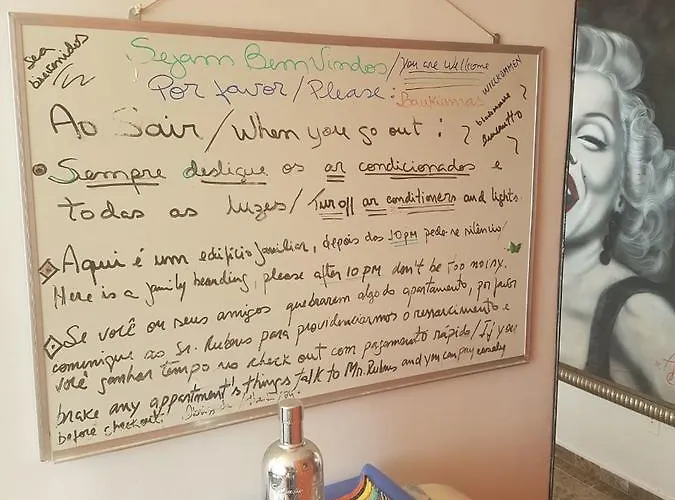 Sea
bienvenidos
Sejam Bem Vindos / You are wellcome
WILLKOMMEN
Por favor / Please:
Ao Sair / When you go out:
• Siempre desligue os ar condicionados e
todas as luzes / Turn off ar conditioners and lights.
Aqui é um edifício familiar, depois das 10 PM pede-se silêncio /
Here is a family beanding, please after 10 PM don't be too noisy.
Se você ou seus amigos quebrarem algo do apartamento, por favor
comunique ao Sr. Rubens para providenciarmos o ressarcimento e
você ganhar tempo no check out com pagamento rápido / If you
brake any appartment's things talk to Mr. Rubens and you can pay
before checkout.